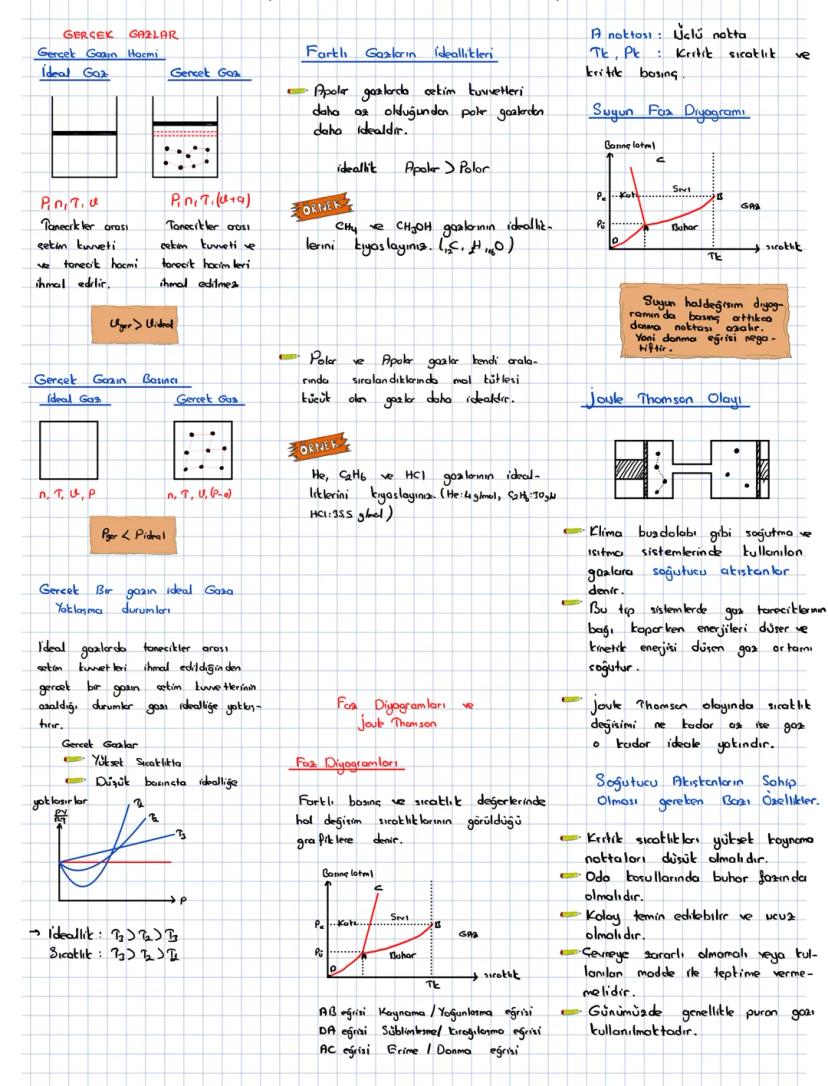 GERÇEK GAZLAR
Gerçek Gazın Hacmi
İdeal Gaz
Gerçek Gaz
P, n, T, V
P, n, T, (V+a)
Tanecikler arası
çekim kuvveti
ve tanecik hacmi
ihmal edilir.
Tanecikler arası
çekim kuvveti ve
tanecik hacimleri
ihmal edilmez
Vger > Videal
Gerçek Gazın Basıncı
İdeal Gaz
Gerçek Gaz
n, T, V, P
n, T, V, (P-a)
Pger < Pideal
Gerçek Bir gazın ideal Gaza
Yaklaşma durumları
İdeal gazlarda tanecikler arası
çekim kuvvetleri ihmal edildiğinden
gerçek bir gazın çekim kuvvetlerinin
azaldığı durumlar gazı idealliğe yaklaş-
tırır.
Gerçek Gazlar
Yüksek Sıcaklıkta
Düşük basınçta idealliğe
yaklaşırlar
PV
RT
T1
T2
T3
P
→ İdeallik : T3 > T2 > T1
Sıcaklık : T3 > T2 > T1
Farklı Gazların İdeallikleri
Apolar gazlarda çekim kuvvetleri
daha az olduğundan polar gazlardan
daha idealdir.
ideallik Apolar > Polar
ÖRNEK
CH4 ve CH3OH gazlarının ideallik-
lerini kıyaslayınız. (12C, 1H, 16O)
Polar ve Apolar gazlar kendi arala-
rında sıralandıklarında mol kütlesi
küçük olan gazlar daha idealdir.
ÖRNEK
He, C2H6 ve HCl gazlarının ideal-
liklerini kıyaslayınız. (He:4 g/mol, C2H6:30 g/M
HCl:35.5 g/mol)
Faz Diyagramları ve
joule Thomson
Faz Diyagramları
Farklı basınç ve sıcaklık değerlerinde
hal değişim sıcaklıklarının görüldüğü
grafiklere denir.
Basınç (atm)
C
Pk
Katı
Sıvı
B
GAZ
Pü
A
Buhar
D
sıcaklık
Tk
AB eğrisi Kaynama / Yoğunlaşma eğrisi
DA eğrisi Süblimleşme/ Kırağılaşma eğrisi
AC eğrisi Erime / Donma eğrisi
A noktası : Üçlü nokta
Tk, Pk : Kritik sıcaklık ve
kritik basınç.
Suyun Faz Diyagramı
Basınç (atm)
C
Pk
Katı
Sıvı
B
GAZ
Pü
A
Buhar
D
sıcaklık
Tk
Suyun haldeğişim diyag-
ramında basınç arttıkça
donma noktası azalır.
Yani donma eğrisi nega-
tiftir.
joule Thomson Olayı
Klima buzdolabı gibi soğutma ve
ısıtma sistemlerinde kullanılan
gazlara soğutucu akışkanlar
denir.
Bu tip sistemlerde gaz taneciklerinin
bağı koparken enerjileri düşer ve
kinetik enerjisi düşen gaz ortamı
soğutur.
joule Thomson olayında sıcaklık
değişimi ne kadar az ise gaz
o kadar ideale yakındır.
Soğutucu Akışkanların Sahip
Olması gereken Bazı Özellikler.
Kritik sıcaklıkları yüksek kaynama
noktaları düşük olmalıdır.
Oda koşullarında buhar fazında
olmalıdır.
Kolay temin edilebilir ve ucuz
olmalıdır.
Çevreye zararlı olmamalı veya kul-
lanılan madde ile tepkime verme-
melidir.
Günümüzde genellikle puron gazı
kullanılmaktadır.